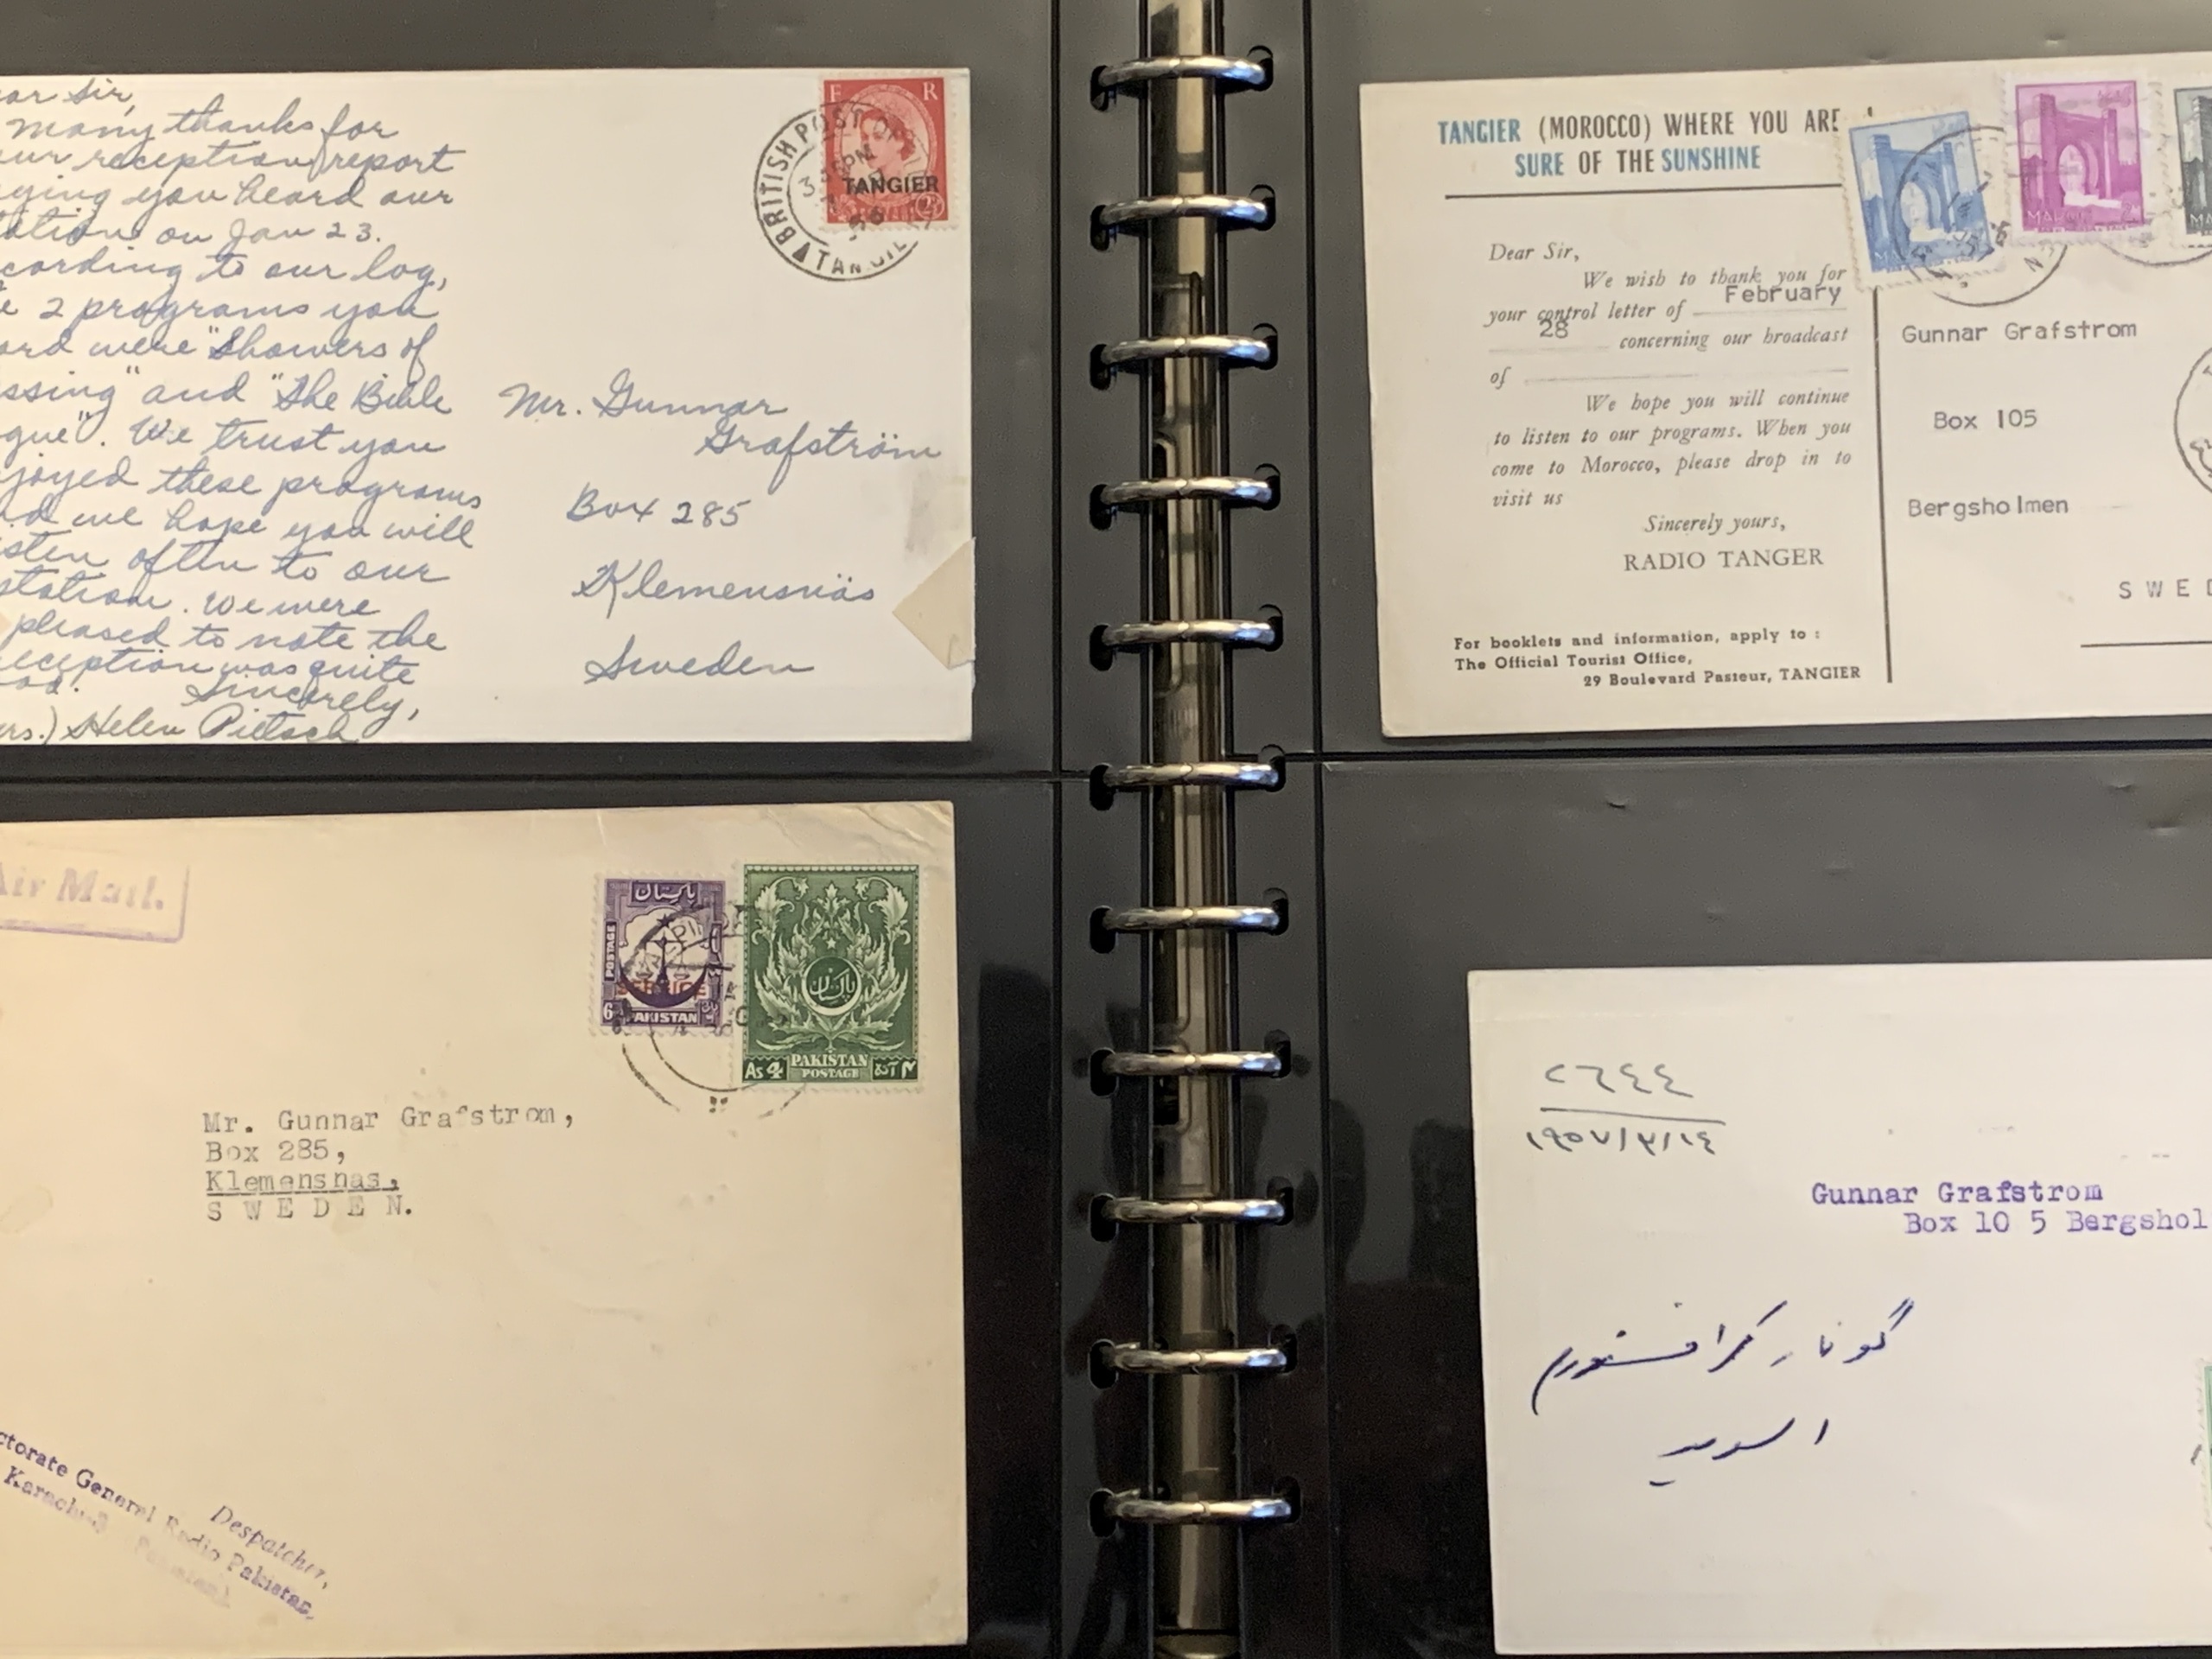 ar Sir,
many thanks for
ur reception report
ying you heard our
tation on Jan 23.
cording to our log,
e 2 programs you
ard were "Showers of
ssing" and "The Bible
gue". We trust you
joyed these programs
nd we hope you will
isten often to our
station. We were
pleased to note the
eception was quite
Sincerely,
rs.) Helen Pietsch
E R
TANGIER
BRITISH POST OFFICE
TANGIER
Mr. Gunnar
Grafström
Box 285
Klemensnäs
Sweden
TANGIER (MOROCCO) WHERE YOU ARE
SURE OF THE SUNSHINE
Dear Sir,
We wish to thank you for
your control letter of February
28 concerning our broadcast
of
We hope you will continue
to listen to our programs. When you
come to Morocco, please drop in to
visit us
Sincerely yours,
RADIO TANGER
For booklets and information, apply to :
The Official Tourist Office,
29 Boulevard Pasteur, TANGIER
MAROC
Gunnar Grafstrom
Box 105
Bergsholmen
SWED
Air Mail.
پاکستان
POSTAGE
SERVICE
PAKISTAN
پاکستان
PAKISTAN
POSTAGE
As 4
Mr. Gunnar Grafstrom,
Box 285,
Klemensnas,
SWEDEN.
Despatcher,
ctorate General Radio Pakistan,
Karachi-3
٢٦٤٤
١٩٥٧/٣/١٤
Gunnar Grafstrom
Box 10 5 Bergshol
گونار گرافستورم
السويد